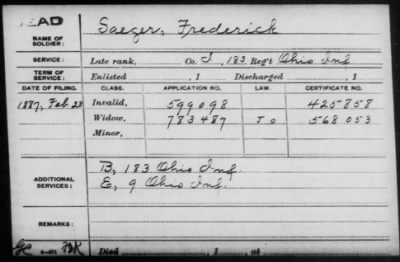 DEAD
NAME OF SOLDIER: Saeger, Frederick
SERVICE: Late rank, Co. I, 183 Reg't Ohio Inf
TERM OF SERVICE: Enlisted , 1 Discharged , 1
DATE OF FILING. CLASS. APPLICATION NO. LAW. CERTIFICATE NO.
1887, Feb 23 Invalid, 599098 425858
Widow, 783487 568053
Minor,
ADDITIONAL SERVICES: B, 183 Ohio Inf.
E, 9 Ohio Inf.
REMARKS:
Died , 1 , at